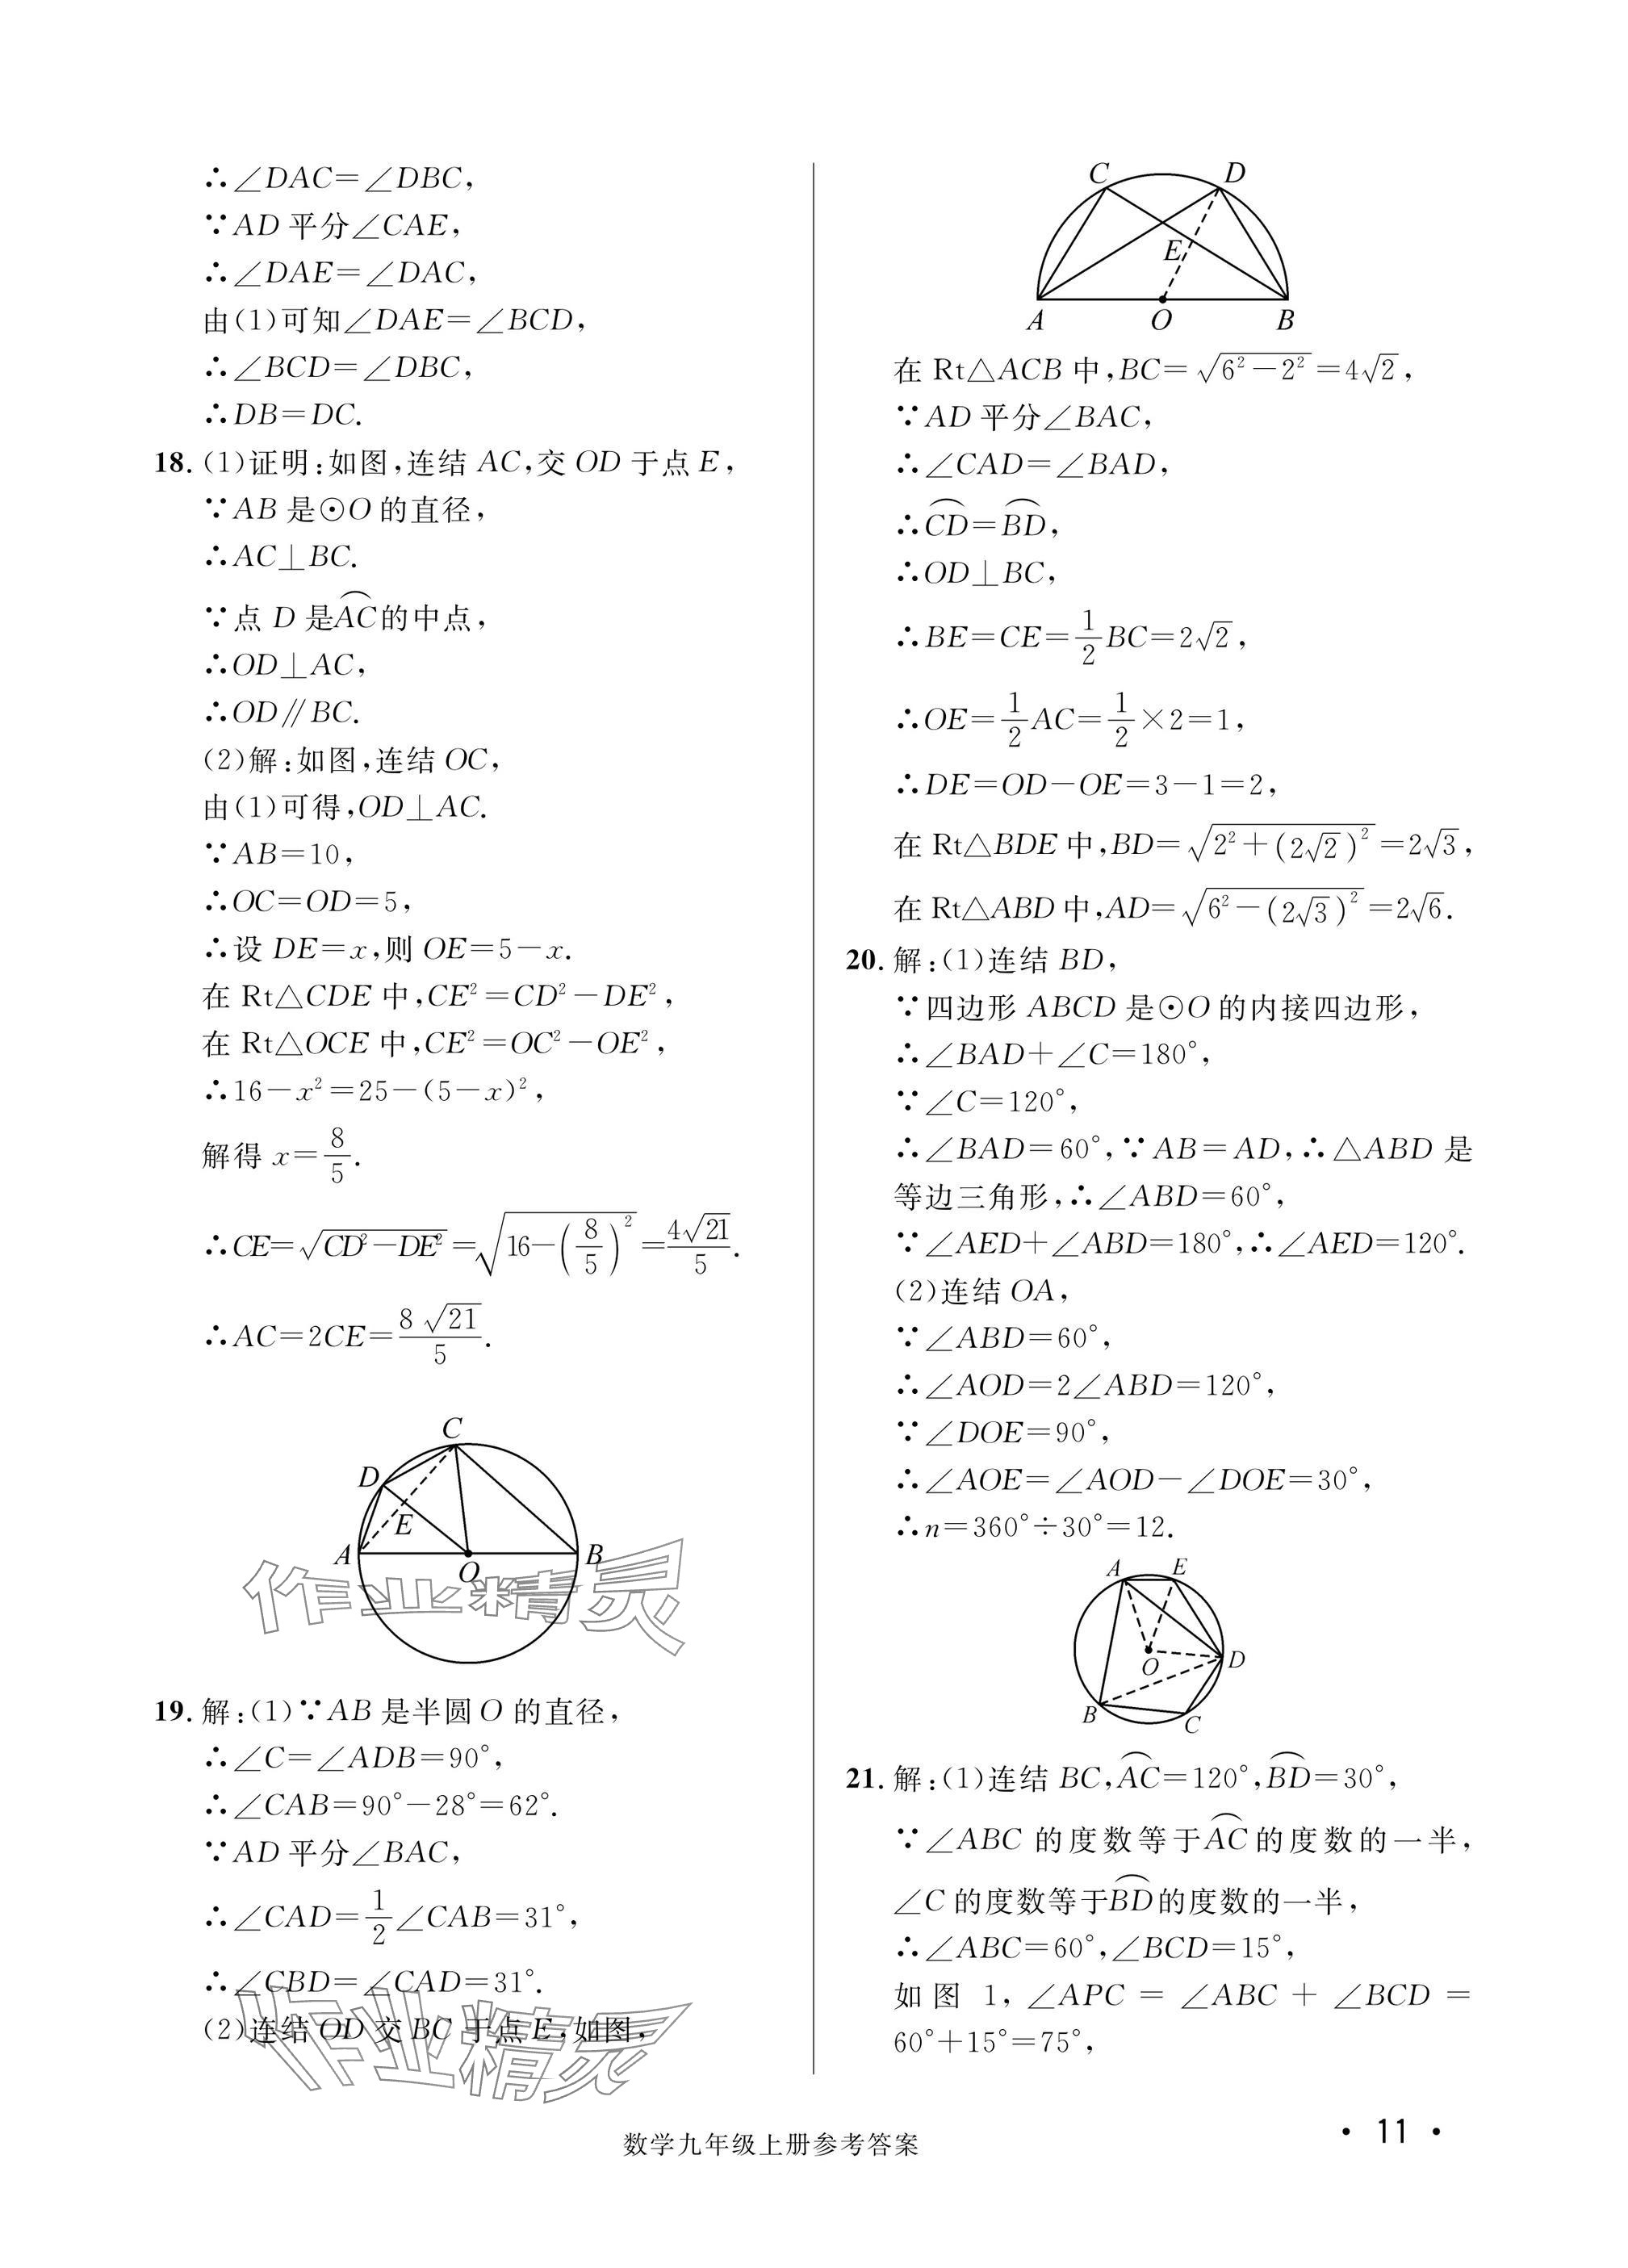 ∴∠DAC=∠DBC,
∵AD 平分∠CAE,
∴∠DAE=∠DAC,
由(1)可知∠DAE=∠BCD,
∴∠BCD=∠DBC,
∴DB=DC.
18. (1)证明:如图,连结 AC,交 OD 于点 E,
∵AB 是⊙O 的直径,
∴AC⊥BC.
∵点 D 是⌒AC的中点,
∴OD⊥AC,
∴OD∥BC.
(2)解:如图,连结 OC,
由(1)可得,OD⊥AC.
∵AB=10,
∴OC=OD=5,
∴设 DE=x,则 OE=5-x.
在 Rt△CDE 中,CE²=CD²-DE²,
在 Rt△OCE 中,CE²=OC²-OE²,
∴16-x²=25-(5-x)²,
解得 x=8/5.
∴CE=√(CD²-DE²)=√(16-(8/5)²)=4√21/5.
∴AC=2CE=8√21/5.
C
D
E
A
O
B
作业精灵
19. 解:(1)∵AB 是半圆 O 的直径,
∴∠C=∠ADB=90°,
∴∠CAB=90°-28°=62°.
∵AD 平分∠BAC,
∴∠CAD=1/2∠CAB=31°,
∴∠CBD=∠CAD=31°.
(2)连结 OD 交 BC 于点 E,如图,
作业精灵
C D
E
A O B
在 Rt△ACB 中,BC=√(6²-2²)=4√2,
∵AD 平分∠BAC,
∴∠CAD=∠BAD,
∴⌒CD=⌒BD,
∴OD⊥BC,
∴BE=CE=1/2BC=2√2,
∴OE=1/2AC=1/2×2=1,
∴DE=OD-OE=3-1=2,
在 Rt△BDE 中,BD=√(2²+(2√2)²)=2√3,
在 Rt△ABD 中,AD=√(6²-(2√3)²)=2√6.
20. 解:(1)连结 BD,
∵四边形 ABCD 是⊙O 的内接四边形,
∴∠BAD+∠C=180°,
∵∠C=120°,
∴∠BAD=60°,∵AB=AD,∴△ABD 是
等边三角形,∴∠ABD=60°,
∵∠AED+∠ABD=180°,∴∠AED=120°.
(2)连结 OA,
∵∠ABD=60°,
∴∠AOD=2∠ABD=120°,
∵∠DOE=90°,
∴∠AOE=∠AOD-∠DOE=30°,
∴n=360°÷30°=12.
A E
O
D
B
C
21. 解:(1)连结 BC,⌒AC=120°,⌒BD=30°,
∵∠ABC 的度数等于⌒AC的度数的一半,
∠C 的度数等于⌒BD的度数的一半,
∴∠ABC=60°,∠BCD=15°,
如图 1, ∠APC = ∠ABC + ∠BCD =
60°+15°=75°,
数学九年级上册参考答案
· 11 ·